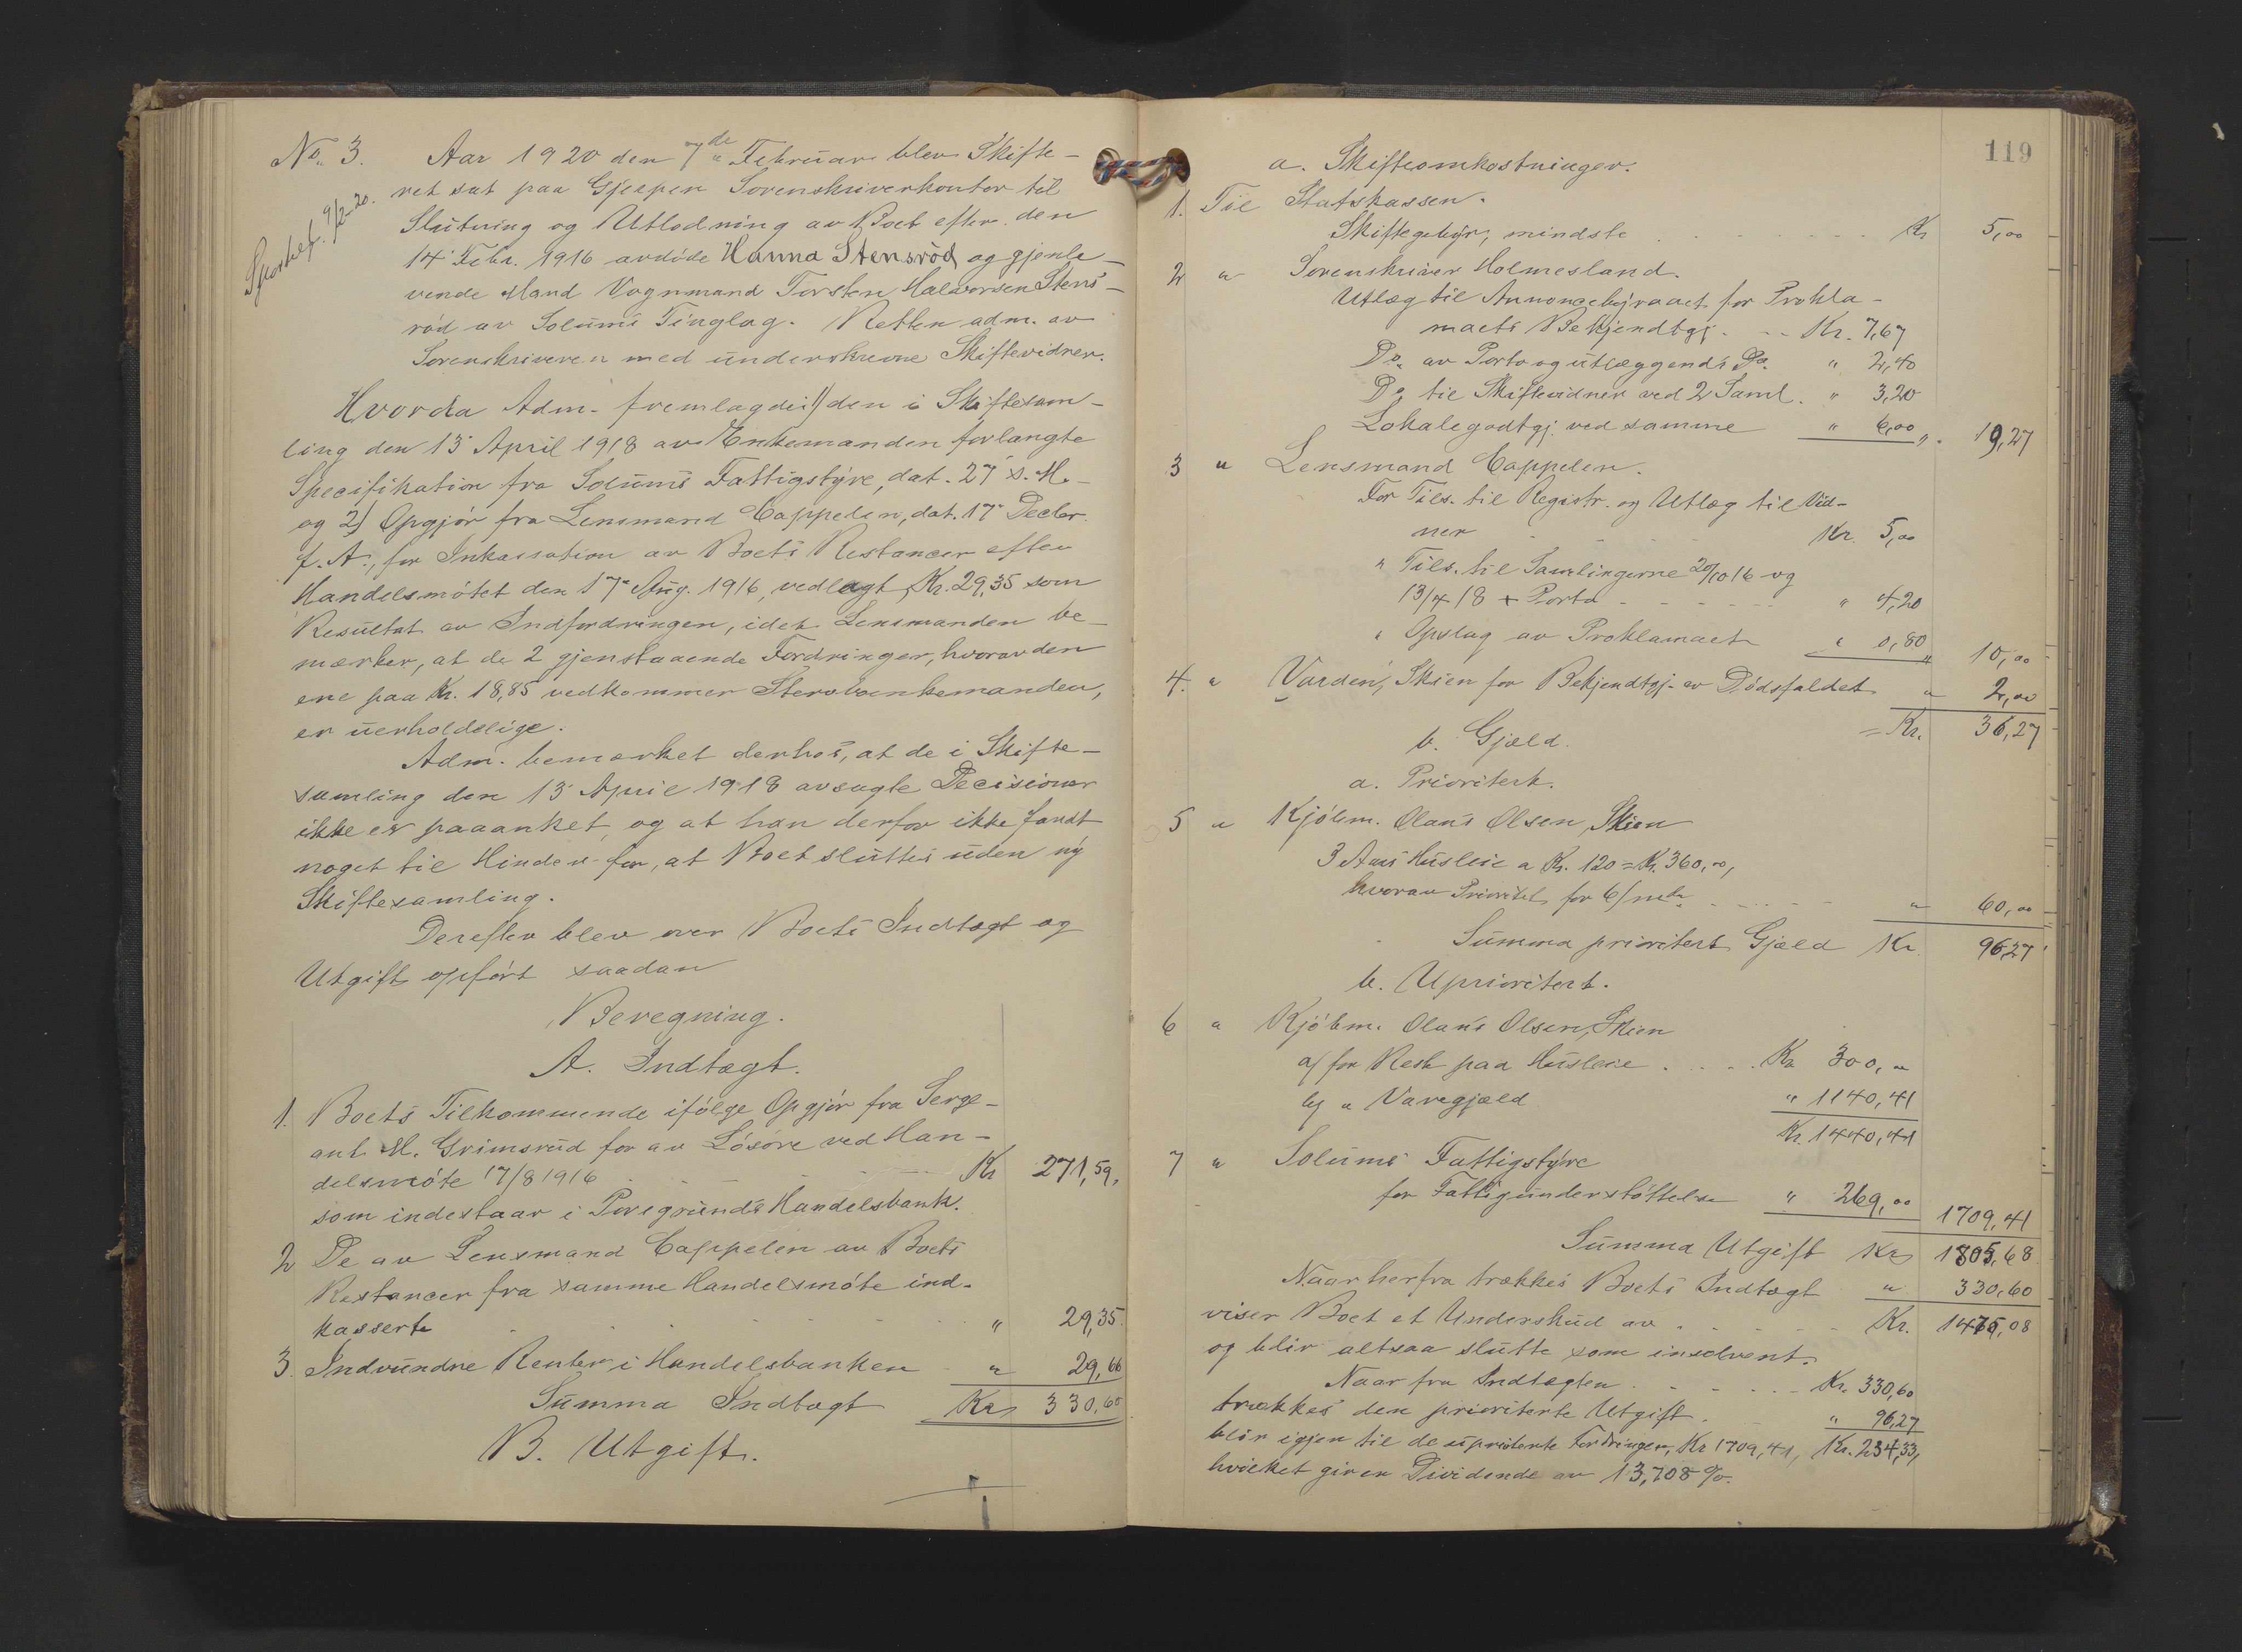 No. 3. Aar 1920 den 7de Februar blev Skifte-
ret sat paa Gjerpen Sorenskriverkontor til
Slutning og Utlodning av Boet efter den
14' Febr. 1916 avdöde Hanna Stensröd og gjenle-
vende Mand Vognmand Torsten Halvorsen Stens-
röd av Solums Tinglag. Retten adm. av
Sorenskriveren med underskrevne Skiftevidner.
9/2-20.
Hvorda Adm. fremlagdes 1) den i Skiftesam-
ling den 13' April 1918 av Enkemanden forlangte
Specifikation fra Solums Fattigstyre, dat. 27' s. M.
og 2) Opgjör fra Lensmand Cappelen, dat. 17' Decbr.
f. A., for Inkassation av Boets Restancer efter
Handelsmötet den 17' Aug. 1916, vedlagt Kr. 29,35 som
Resultat av Indfordringen, idet Lensmanden be-
mærker, at de 2 gjenstaaende Fordringer, hvorav den
ene paa Kr. 18,85 vedkommer Stervboenkemanden,
er uerholdelige.
Adm. bemærket derhos, at de i Skifte-
samling den 13' April 1918 avsagte Decisioner
ikke er paaanket, og at han derfor ikke fandt
noget til Hinder for, at Boet sluttes uden ny
Skiftesamling.
Derefter blev over Boets Indtægt og
Utgift opfört saadan
Beregning.
A. Indtægt.
1. Boets Tilkommende ifölge Opgjör fra Serge-
ant M. Grimsrud for av Lösöre ved Han-
delsmöte 17/8 1916 . . . Kr 271,59,
som indestaar i Porsgrunds Handelsbank.
2 De av Lensmand Cappelen av Boets
Restancer fra samme Handelsmöte ind-
kasserte . . . " 29,35.
3. Indvundne Renter i Handelsbanken " 29,66
Summa Indtægt Kr 330,60
B. Utgift.
119
a. Skifteomkostninger.
1. Til Statskassen.
Skiftegebyr, mindste . . . Kr 5,00
2 " Sorenskriver Holmesland.
Utlæg til Annoncebyraaet for Prokla-
maets Bekjendtgj. . . Kr. 7,67
Do. av Porto og utlæggends Do. " 2,40
Do til Skiftevidner ved 2 Saml. " 3,20
Lokalegodtgj. ved samme " 6,00 " 19,27
3 " Lensmand Cappelen.
For Tils. til Registr. og Utlæg til Vid-
ner . . . Kr. 5,00
" Tils. til Samlingerne 20/10 16 og
13/4 18 + Porto . . . " 4,20
" Opslag av Proklamaet " 0,80 " 10,00
4. " Varden, Skien for Bekjendtgj. av Dödsfaldet " 2,00
= Kr. 36,27
b. Gjæld.
a. Prioritert.
5 " Kjöbm. Olaus Olsen, Skien
3 Aars Husleie a Kr. 120 = Kr. 360,00,
hvorav Prioritet for 6/mdr. . . . " 60,00
Summa prioritert Gjæld Kr 96,27
b. Uprioritert.
6 " Kjöbm. Olaus Olsen, Skien
a) for Rest paa Husleie . . . Kr 300,00
b) " Varegjæld " 1140,41
Kr. 1440,41
7 " Solums Fattigstyre
for Fattigunderstöttelse " 269,00 1709,41
Summa Utgift Kr 1805,68
Naar herfra trækkes Boets Indtægt " 330,60
viser Boet et Underskud av . . . Kr. 1475,08
og blir altsaa slutte som insolvent.
Naar fra Indtægten . . . Kr. 330,60
trækkes den prioriterte Utgift . . " 96,27
blir igjen til de upriorterte Fordringer, Kr 1709,41, Kr. 234,33,
hvilket giver Dividende av 13,708 %.